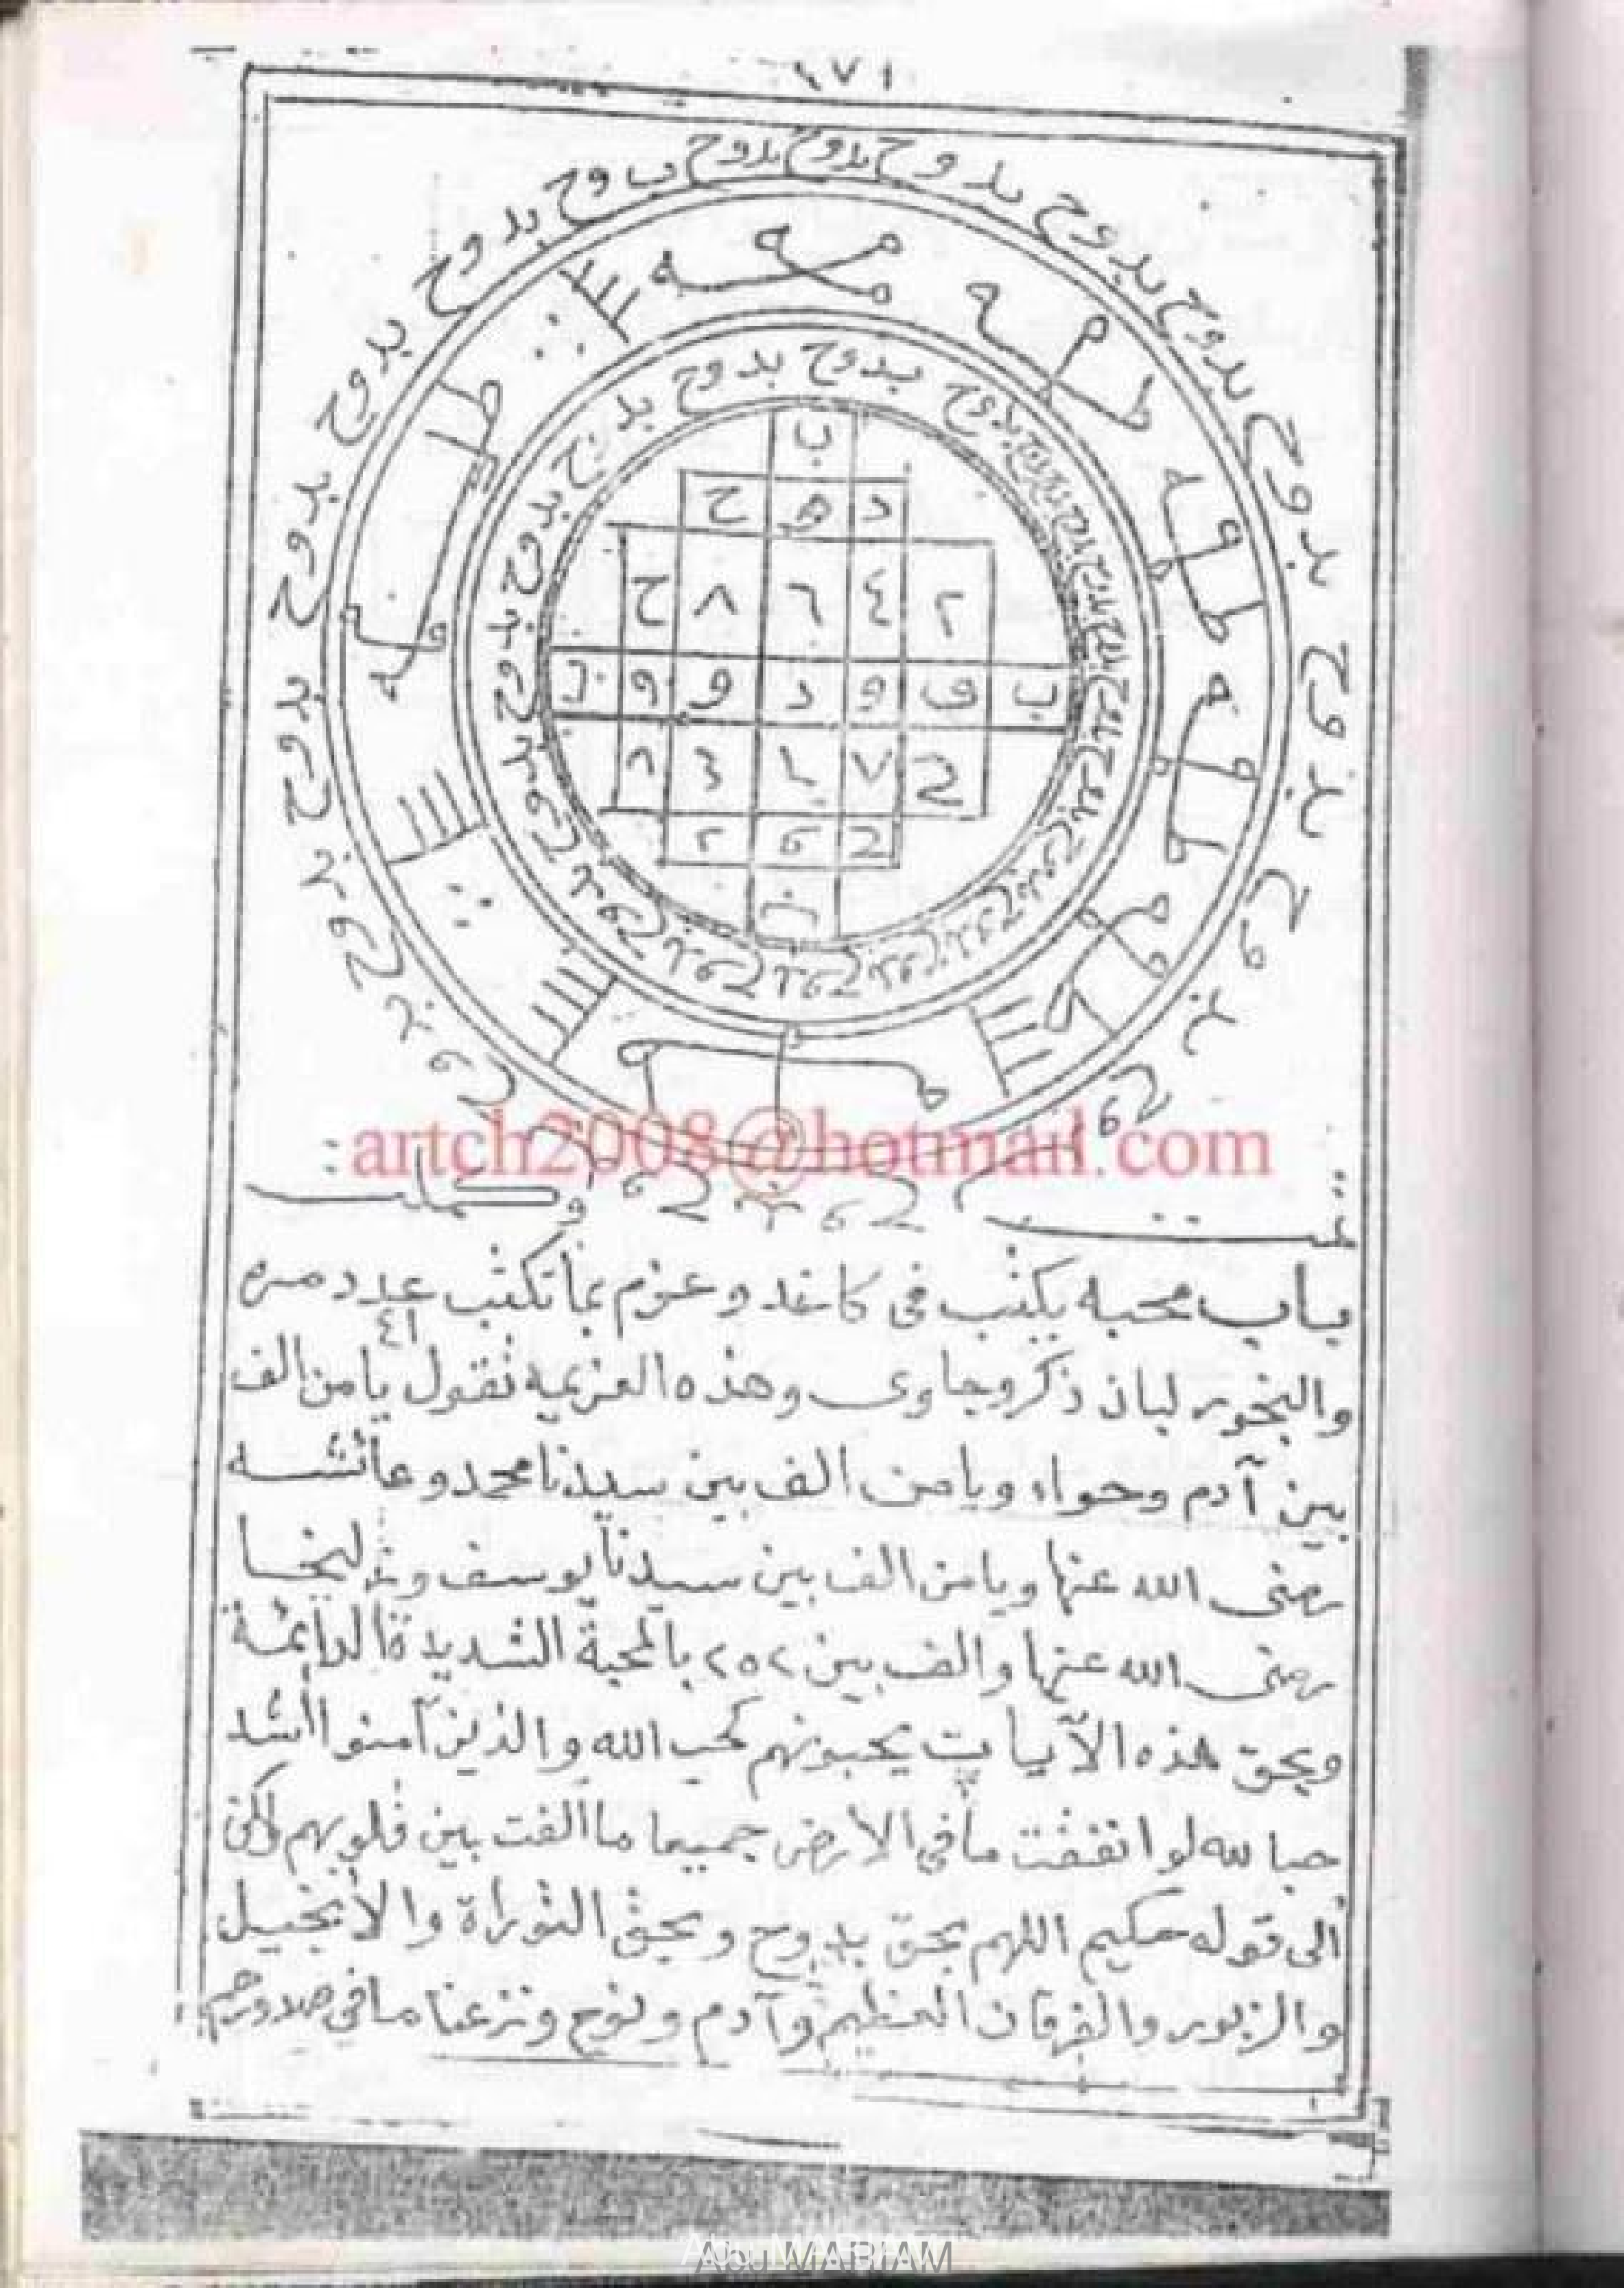 ١٧١
بدوح بدوح بدوح بدوح بدوح بدوح بدوح بدوح بدوح بدوح بدوح بدوح
بدوح بدوح بدوح بدوح بدوح بدوح
ب
د ه ح
٢ ٤ ٦ ٨ ح
ب و و د و و
٧ ٢ ٣ د
artch2008@hotmail.com
تمت وكملت
باب محبه يكتب فى كاغد وعزم بما تكتب عدد مره
٤١
والبخور لبان ذكر وجاوى وهذه العزيمه تقول يا من الف
بين آدم وحواء ويا من الف بين سيدنا محمد وعائشه
رضى الله عنها ويا من الف بين سيدنا يوسف وزليخا
رضى الله عنها والف بين ٢٥٢ بالمحبة الشديدة الدائمة
وبحق هذه الآيات يحبونهم كحب الله والذين آمنوا أشد
حبا لله لو انفقت ما فى الارض جميعا ما الفت بين قلوبهم ولكن
الى قوله حكيم اللهم بحق بدوح وبحق التوراة والأنجيل
والزبور والفرقان العظيم وآدم ونوح ونزعنا ما فى صدورهم
Abu MARIAM